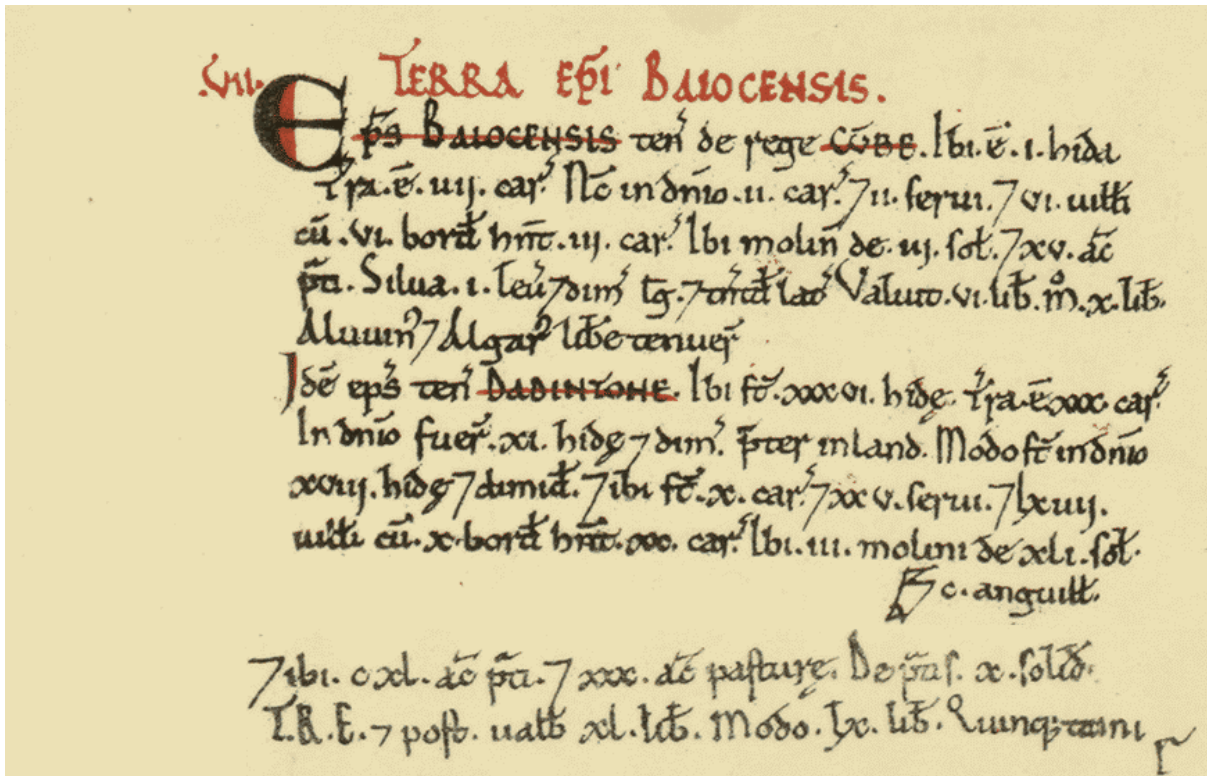 .VII. TERRA EP̃I BAIOCENSIS.
EP̃S BAIOCENSIS teñ de rege COBE. Ibi.ē.i.hida
Tr̃a.ē.iiij.car̃. Nc̃ in dñio.ii.car̃.⁊ ii.serui.⁊ vi.uilłi
cū.vi.bord̃ hñt.iij.car̃. Ibi moliñ de.iij.soł.⁊ xv.ac̃
p̃ti. Silua.i.leũ ⁊ dim̃ lg̃.⁊ tñtd̃ lat̃. Valuit.vi.lib̃. m̊.x.lib̃.
Aluuiñ ⁊ Algar̃ lib̃e tenuer̃
Idē ep̃s teñ DADINTONE. Ibi st̃.xxxvi.hidę. Tr̃a.ē.xxx.car̃.
In dñio fuer̃.xi.hidę ⁊ dim̃. p̃ter inland. Modo st̃ in dñio
xviij.hidę ⁊ dimid̃.⁊ ibi st̃.x.car̃.⁊ xxv.serui.⁊ lxiiij.
uilłi cū.x.bord̃ hñt.xx.car̃. Ibi.iii.molini de xli.soł.
⁊ c.anguilł.
⁊ ibi.c xl.ac̃ p̃ti.⁊ xxx.ac̃ pasturę. De p̃tis.x.solid̃.
T.R.E.⁊ post.ualb̃ xl.lib̃. Modo.lx.lib̃. Quinq; taini